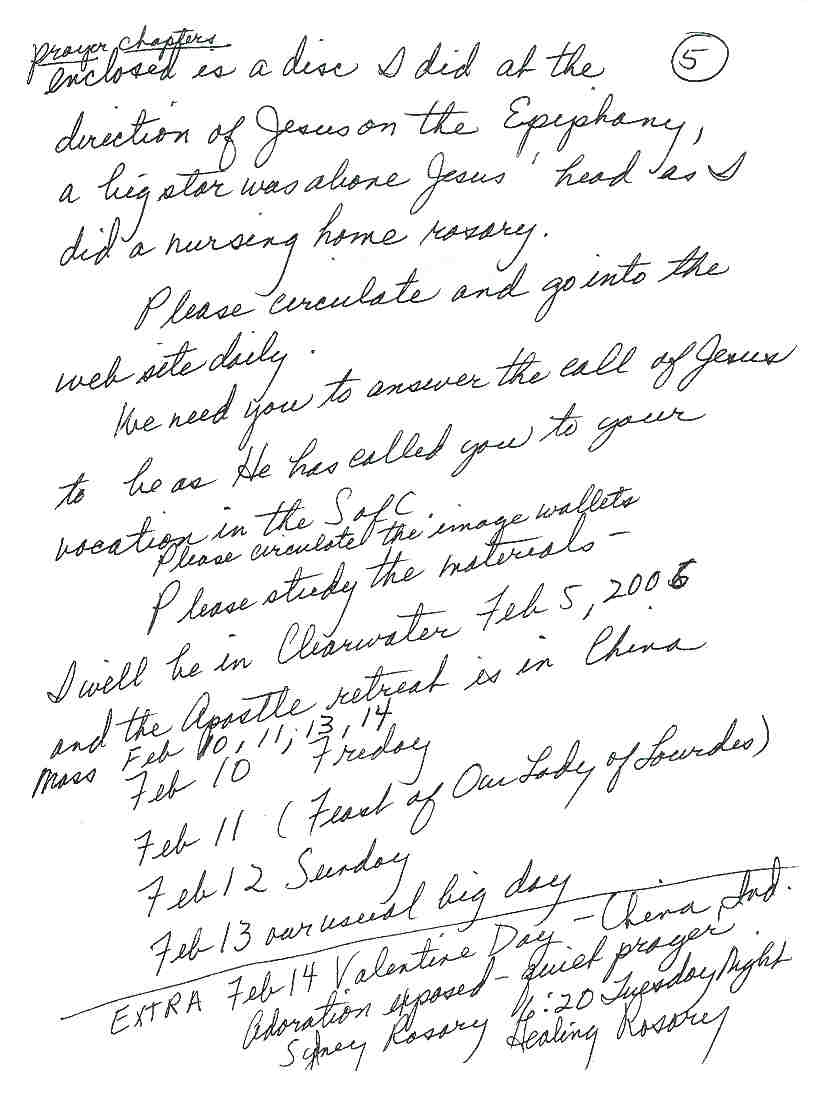 prayer chapters
enclosed is a disc I did at the
5
direction of Jesus on the Epiphany,
a big star was above Jesus' head as I
did a nursing home rosary.
Please circulate and go into the
web site daily.
We need you to answer the call of Jesus
to be as He has called you to your
vocation in the S of C.
Please circulate the image wallets
Please study the materials -
I will be in Clearwater Feb 5, 2006
and the Apostle retreat is in China
Mass Feb 10, 11, 13, 14
Feb 10 Friday
Feb 11 (Feast of Our Lady of Lourdes)
Feb 12 Sunday
Feb 13 our usual big day
EXTRA Feb 14 Valentine Day - China, Ind.
Adoration exposed - quiet prayer
Sydney Rosary 6:20 Tuesday Night
Healing Rosary